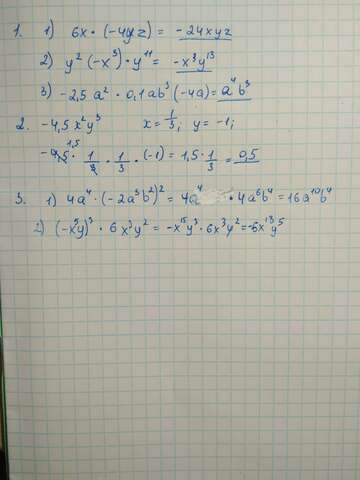 1. 1) 6x · (-4yz) = -24xyz
2) y² (-x³) · y¹¹ = -x³y¹³
3) -2,5 a² · 0,1ab³ (-4a) = a⁴b³
2. -4,5x²y³ x = 1/3; y = -1;
-4,5 1,5 · 1/3 · 1/3 · (-1) = 1,5 · 1/3 = 0,5
3. 1) 4a⁴ · (-2a³b²)² = 4a⁴ · 4a⁶b⁴ = 16a¹⁰b⁴
2) (-x⁵y)³ · 6x³y² = -x¹⁵y³ · 6x³y² = -6x¹⁸y⁵